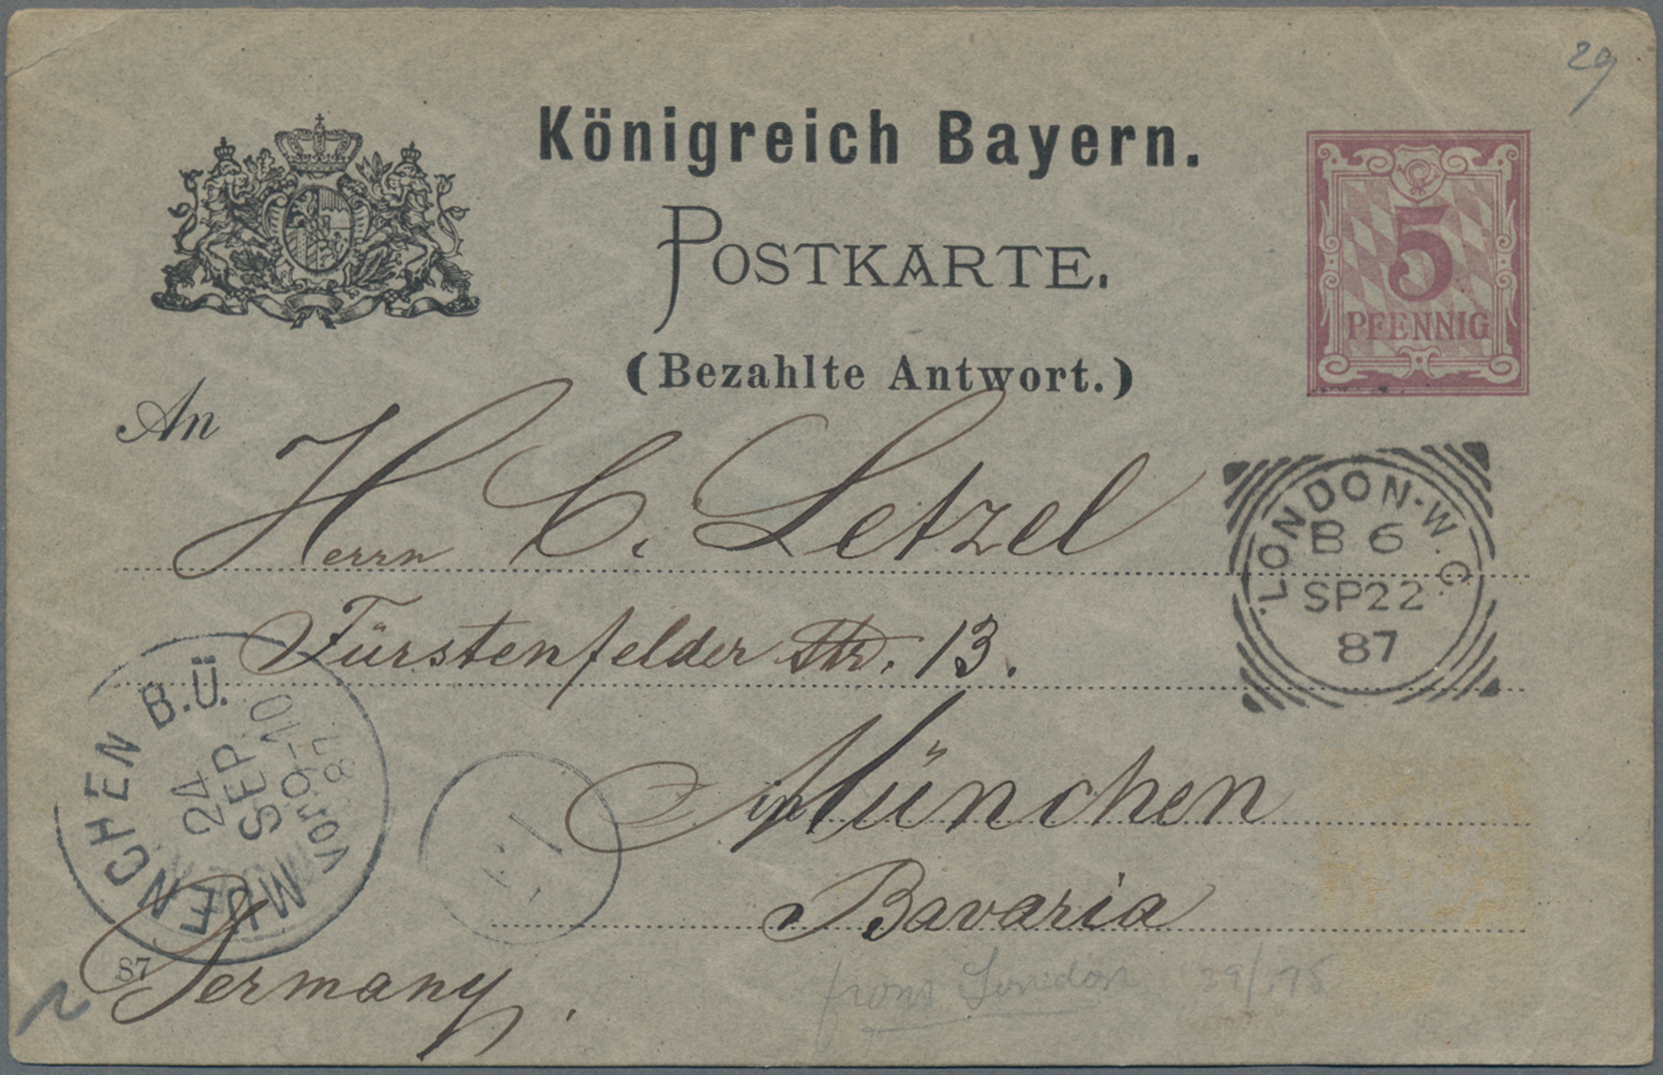 29
Königreich Bayern.
POSTKARTE.
(Bezahlte Antwort.)
5
PFENNIG
An
Herrn C. Letzel
Fürstenfelder Str. 13.
in München
Bavaria
Germany.
LONDON-W.C.
B 6
SP 22
87
MUENCHEN B.Ü.
24
SEP
9-10
VOR.
87
87
from London